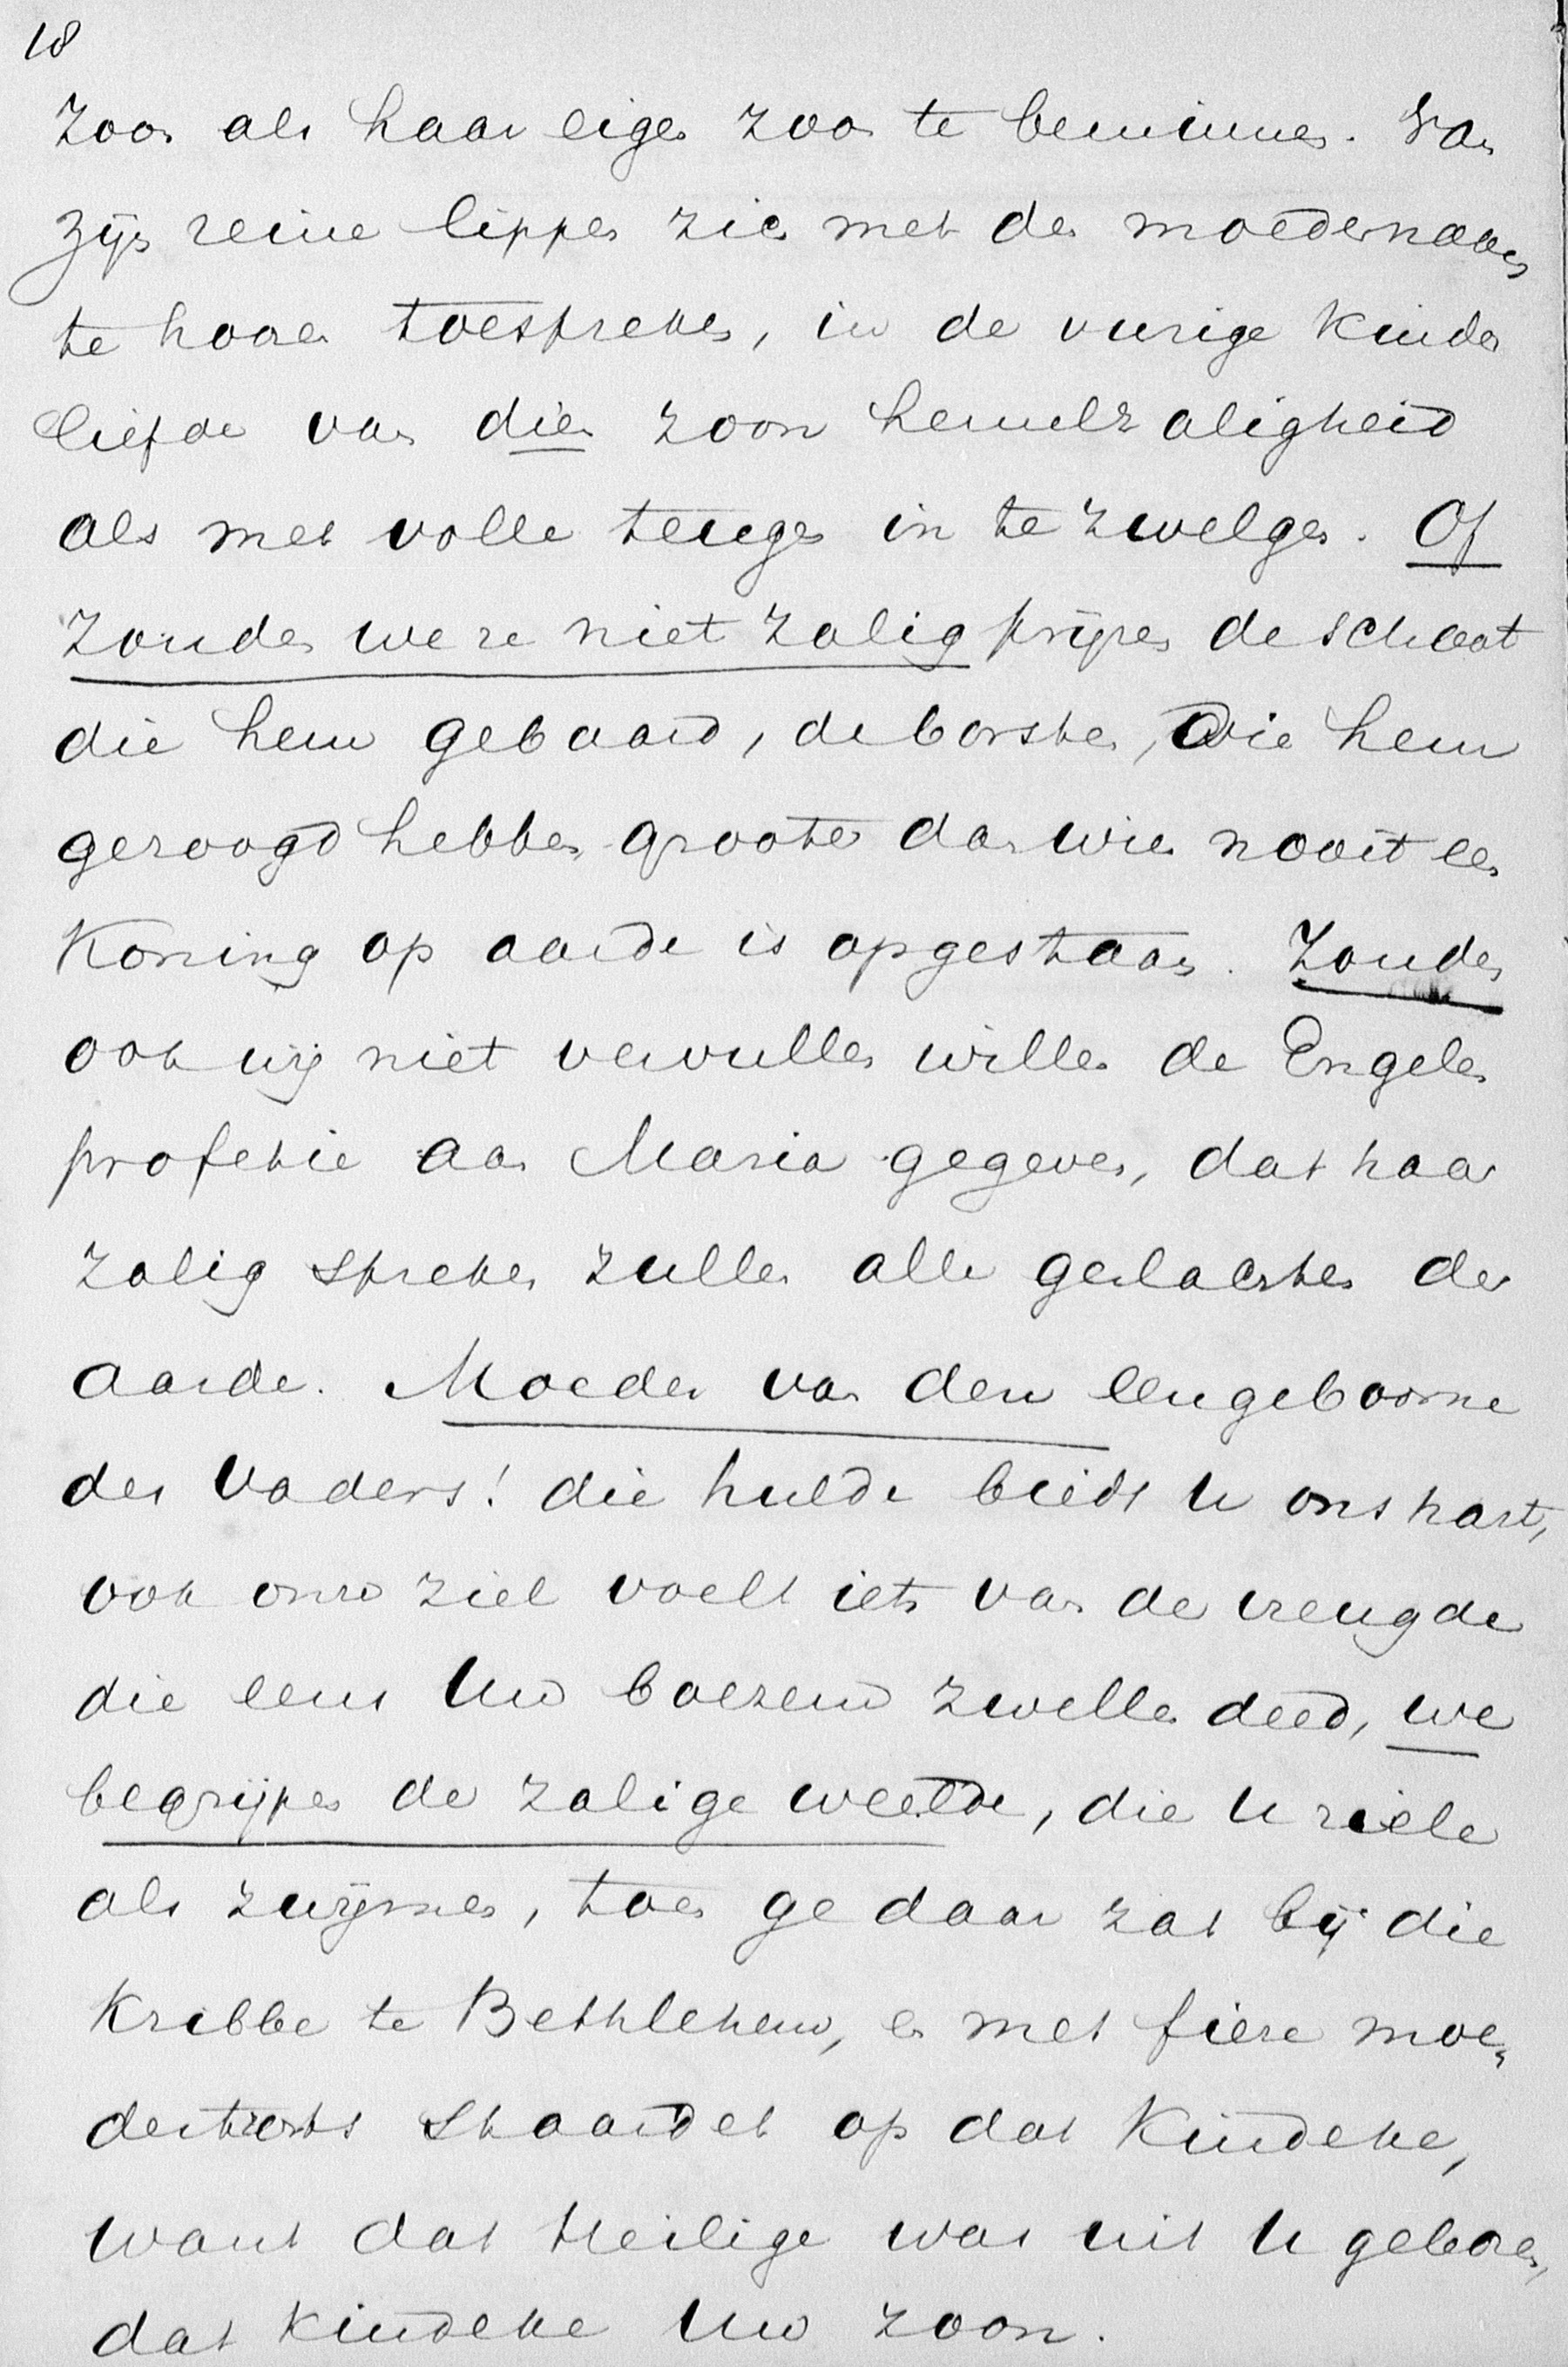 18
Zoon als haar eigen zoon te beminnen. Van
zijn reine lippen zich met den moedernaam
te hooren toespreken, in de vurige kinder
liefde van dien zoon hemelzaligheid
als met volle teugen in te zwelgen. Of
zouden we ze niet zalig prijzen de schoot
die hem gebaard, de borsten, die hem
gezoogd hebben, grooter dan wien nooit een
Koning op aarde is opgestaan. Zouden
ook wij niet vervullen willen de Engelen
profetie aan Maria gegeven, dat haar
zalig spreken zullen alle geslachten der
aarde. Moeder van den eengeboorne
des Vaders! die hulde biedt U ons hart,
ook onze ziel voelt iets van de vreugde
die eens Uw boezem zwellen deed, we
begrijpen de zalige weelde, die U ziele
als zwijmen, toen ge daar zat bij die
Kribbe te Bethlehem, en met fiere moe„
dertrots staardet op dat Kindeke,
want dat Heilige was uit U geboren,
dat kindeke Uw zoon.